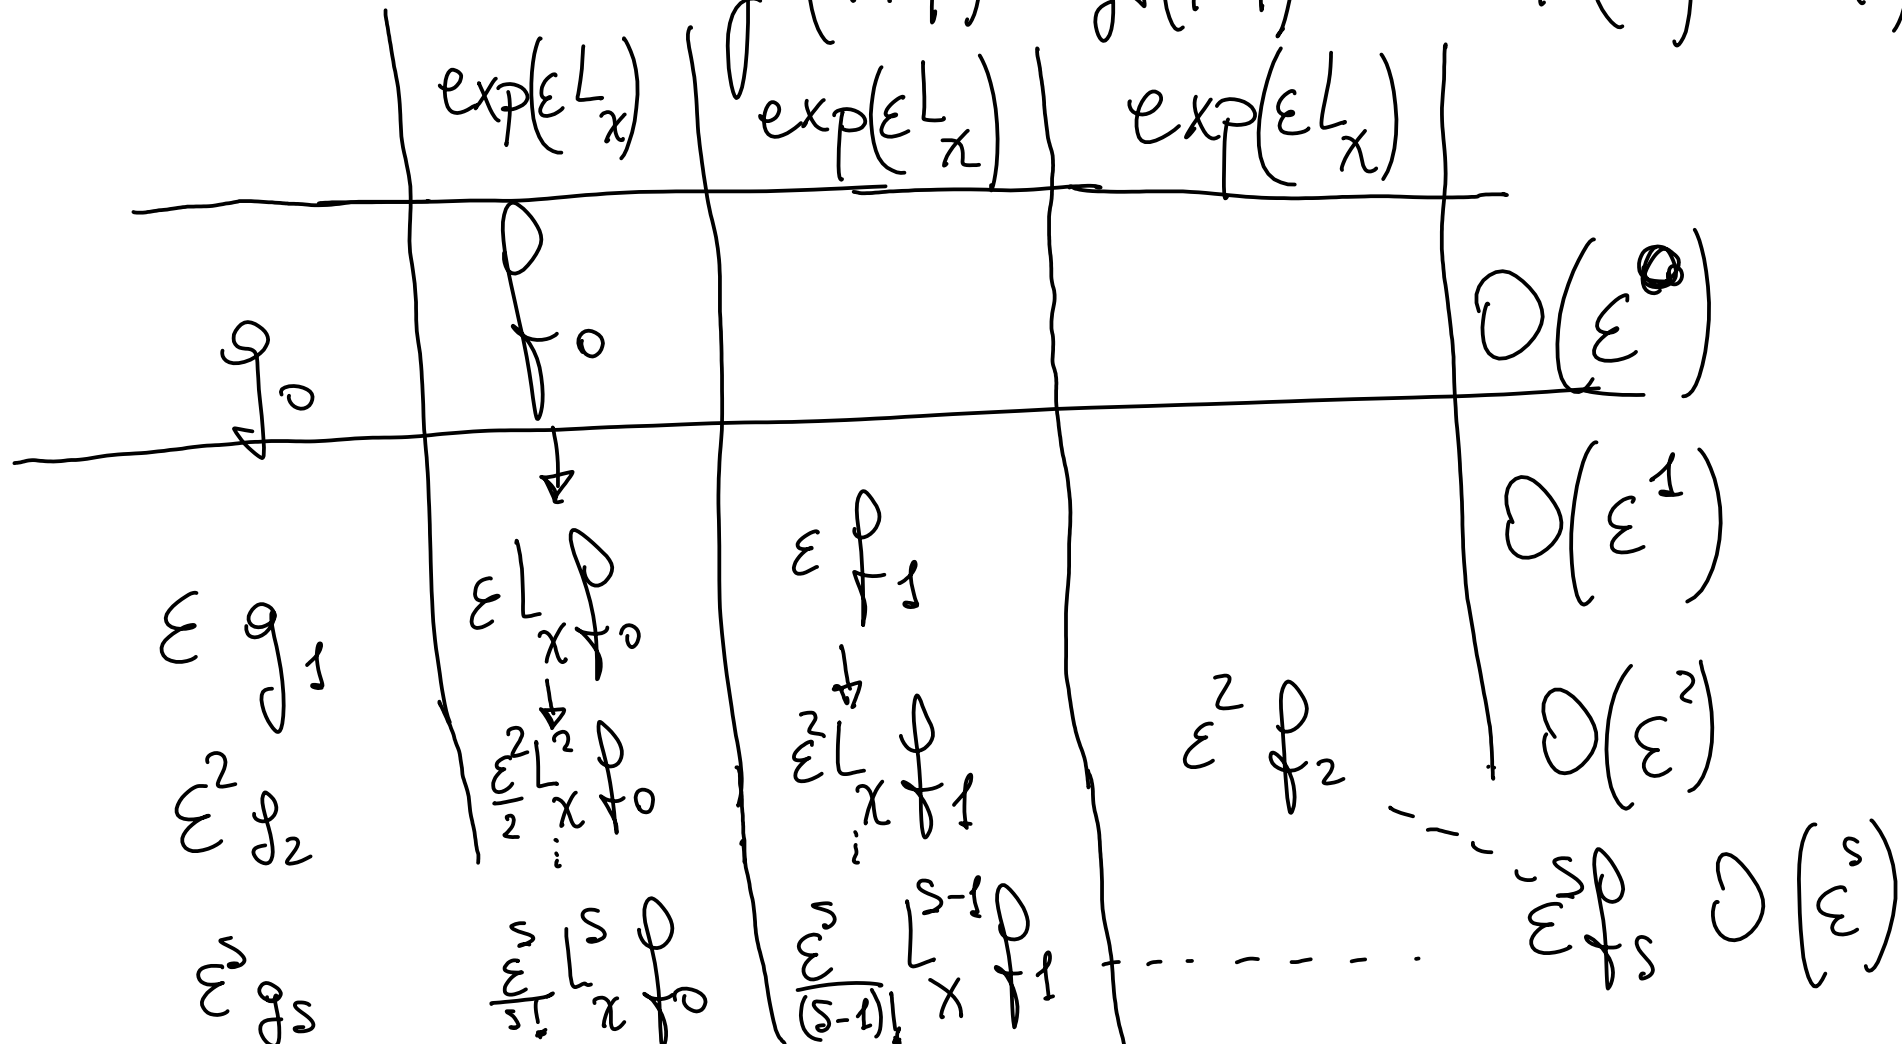 exp(εL_χ) exp(εL_χ) exp(εL_χ)
g_0 f_0 O(ε^0)
ε g_1 εL_χ f_0 ε f_1 O(ε^1)
ε^2 g_2 ε^2/2 L_χ^2 f_0 ε^2 L_χ f_1 ε^2 f_2 O(ε^2)
ε^s g_s ε^s/s! L_χ^s f_0 ε^s/(s-1)! L_χ^{s-1} f_1 - - - - - - - ε^s f_s O(ε^s)